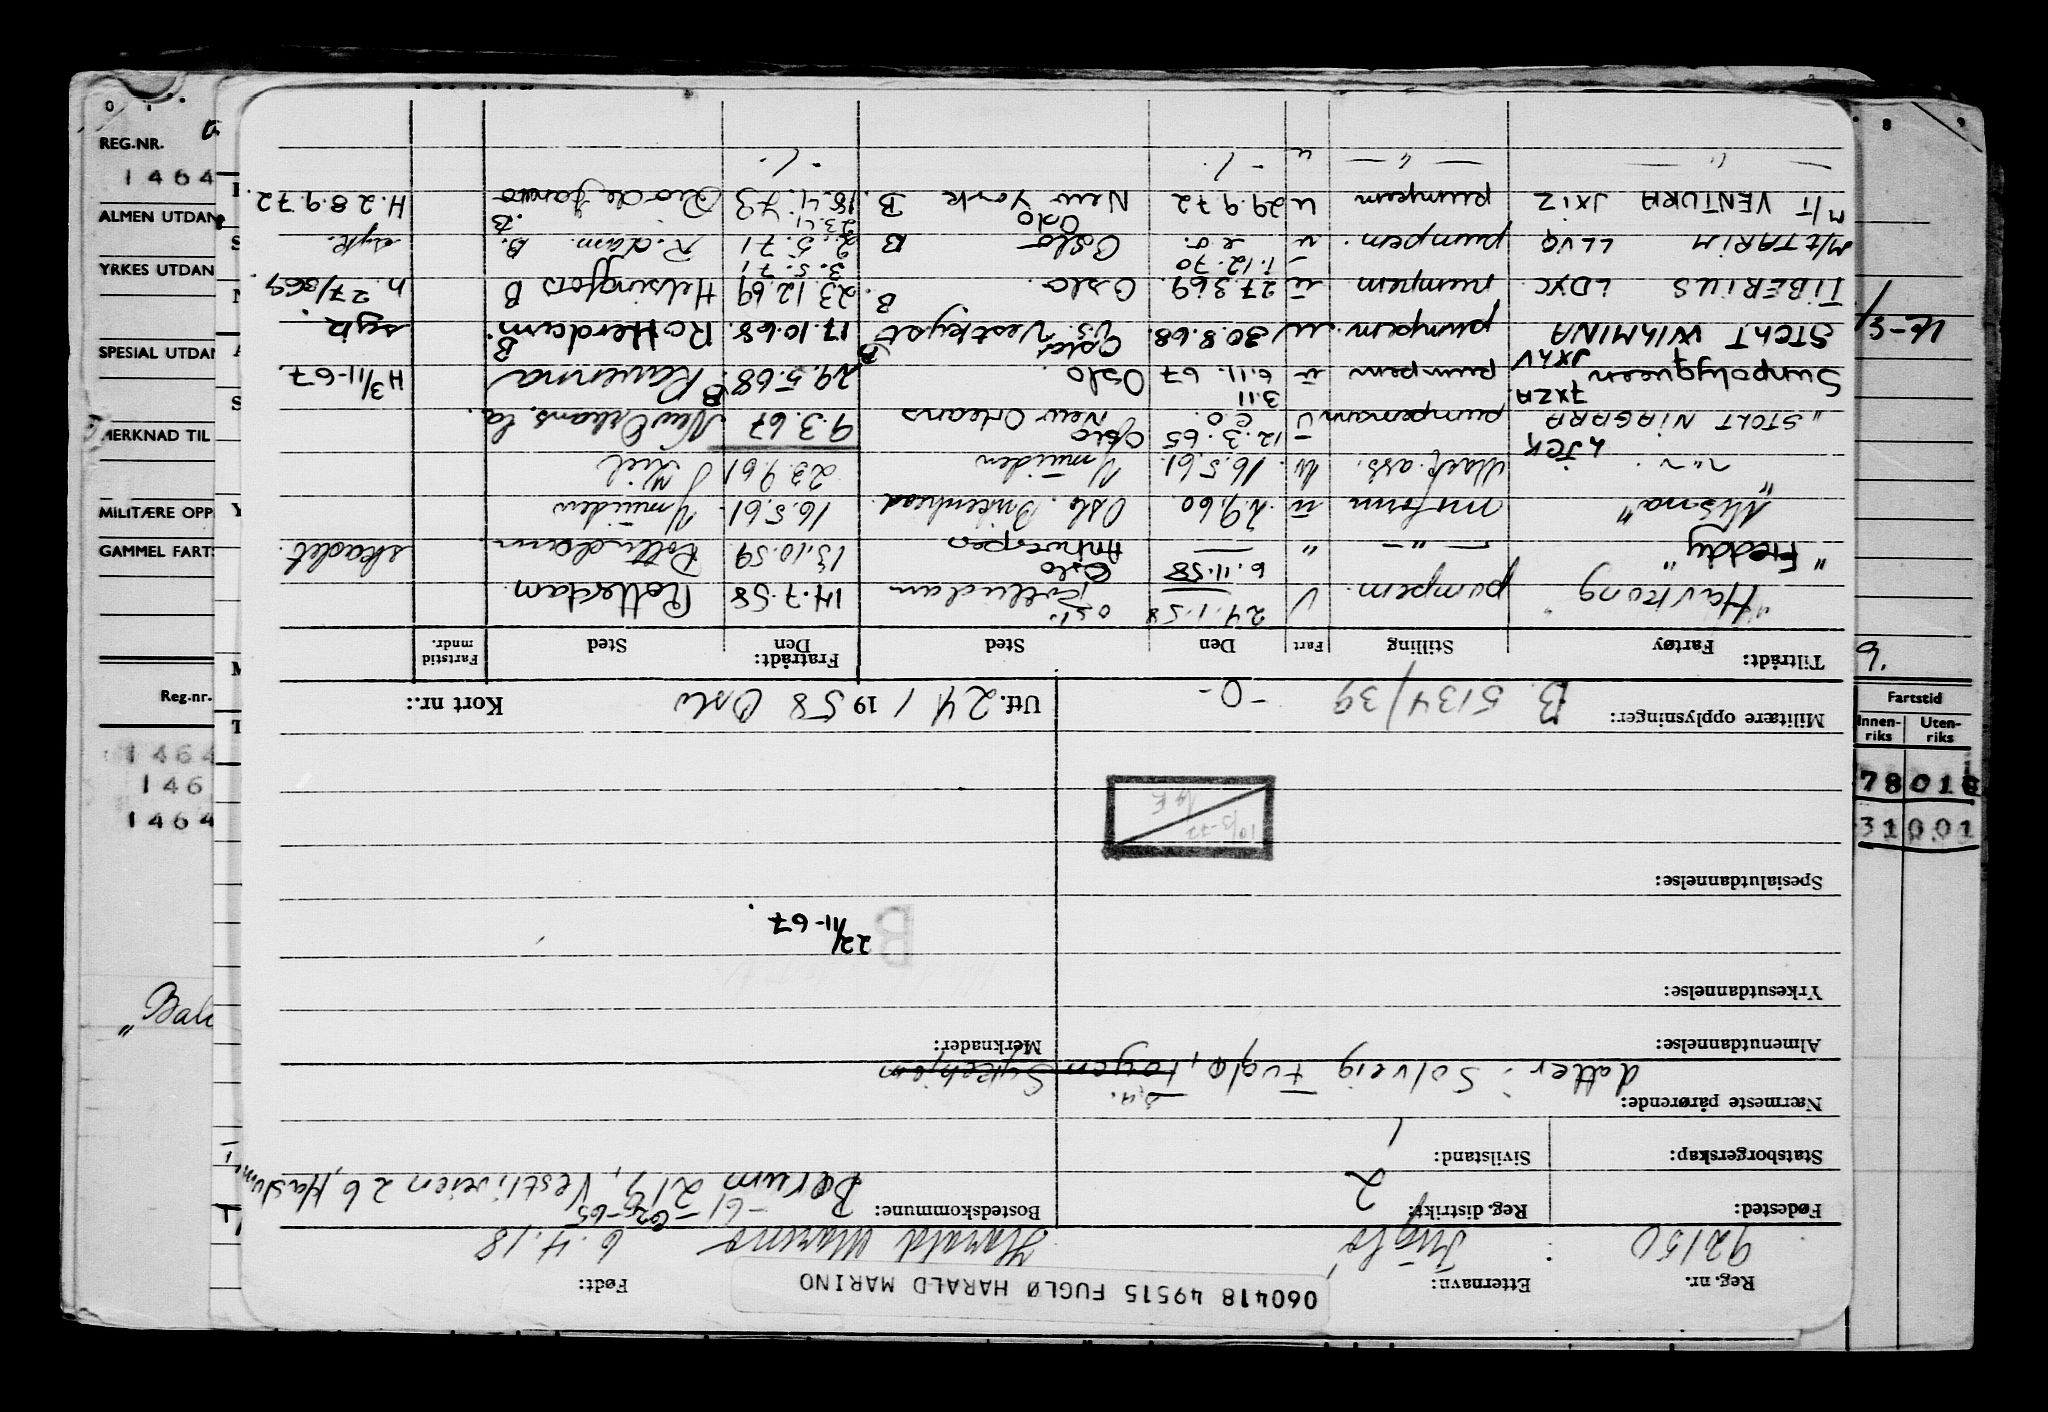 060418 49515 FUGLØ HARALD MARINO
Reg. nr. Etternavn: Født:
92150 Fuglø Harald Marino 6.4.18
Fødested: Reg. distrikt: 2 Bostedskommune: Bærum 219, Vestliveien 26, Haslum
Statsborgerskap: Sivilstand: 1
Nærmeste pårørende:
datter: Solveig Fuglø, Tøyen Sykehjem
Almenutdannelse: Merknader:
Yrkesutdannelse:
B 22/11-67
Spesialutdannelse:
10/3-72
Militære opplysninger: B. 5134/39 -0- Utf. 24/1 1958 Oslo Kort nr.:
Tiltrådt: Fratrådt:
Fartøy Stilling Fart Den Sted Den Sted Fartstid mndr.
"Havkong" pumpem. U 24.1.58 Rotterdam 14.7.58 Rotterdam
"Freddy" — " — " 6.11.58 Oslo Antwerpen 13.10.59 Rotterdam skadet.
"Misma" ū 2.9.60 Oslo. Birkenhead 16.5.61 Ymuiden
Mask.ass. u. 16.5.61. Ymuiden 23.9.61 Kiel
LJCK
"STOLT NIAGARA pumpemann U 12.3.65 e.o. Oslo New Orleans 9.3.67 New Orleans. La.
JXZA
Sunpolyqueen JXKV pumpem ū 3.11 6.11.67 Oslo. B 29.5.68 Ravenna B H 3/11-67.
STOLT WILMINA pumpem. u 30.8.68. Oslo U.S. Vestkyst 17.10.68. Rotterdam. B syk.
TIBERIUS LDXC pumpem ū 27.3.69. Oslo. B. 23.12.69 Helsingfors B h. 27/3 69
M/T TARIM LLVQ pumpem. u 1.12.70 e o. Oslo B 3.5.71 2.5.71 R.dam. B. syk.
M/T VENTURA JXIZ pumpem U 29.9.72 Oslo New York B. 23.4.73 18.4.73 Rio de Janeiro B. H. 28.9.72.
— " — — " — u - /. - /.
REG.NR.
1464
ALMEN UTDAN
YRKES UTDAN
SPESIAL UTDAN
MERKNAD TIL
MILITÆRE OPP
GAMMEL FARTS
Reg-nr.
1464
146
1464
"Bal
Fartstid
Innen-riks Uten-riks
78 01
31 001